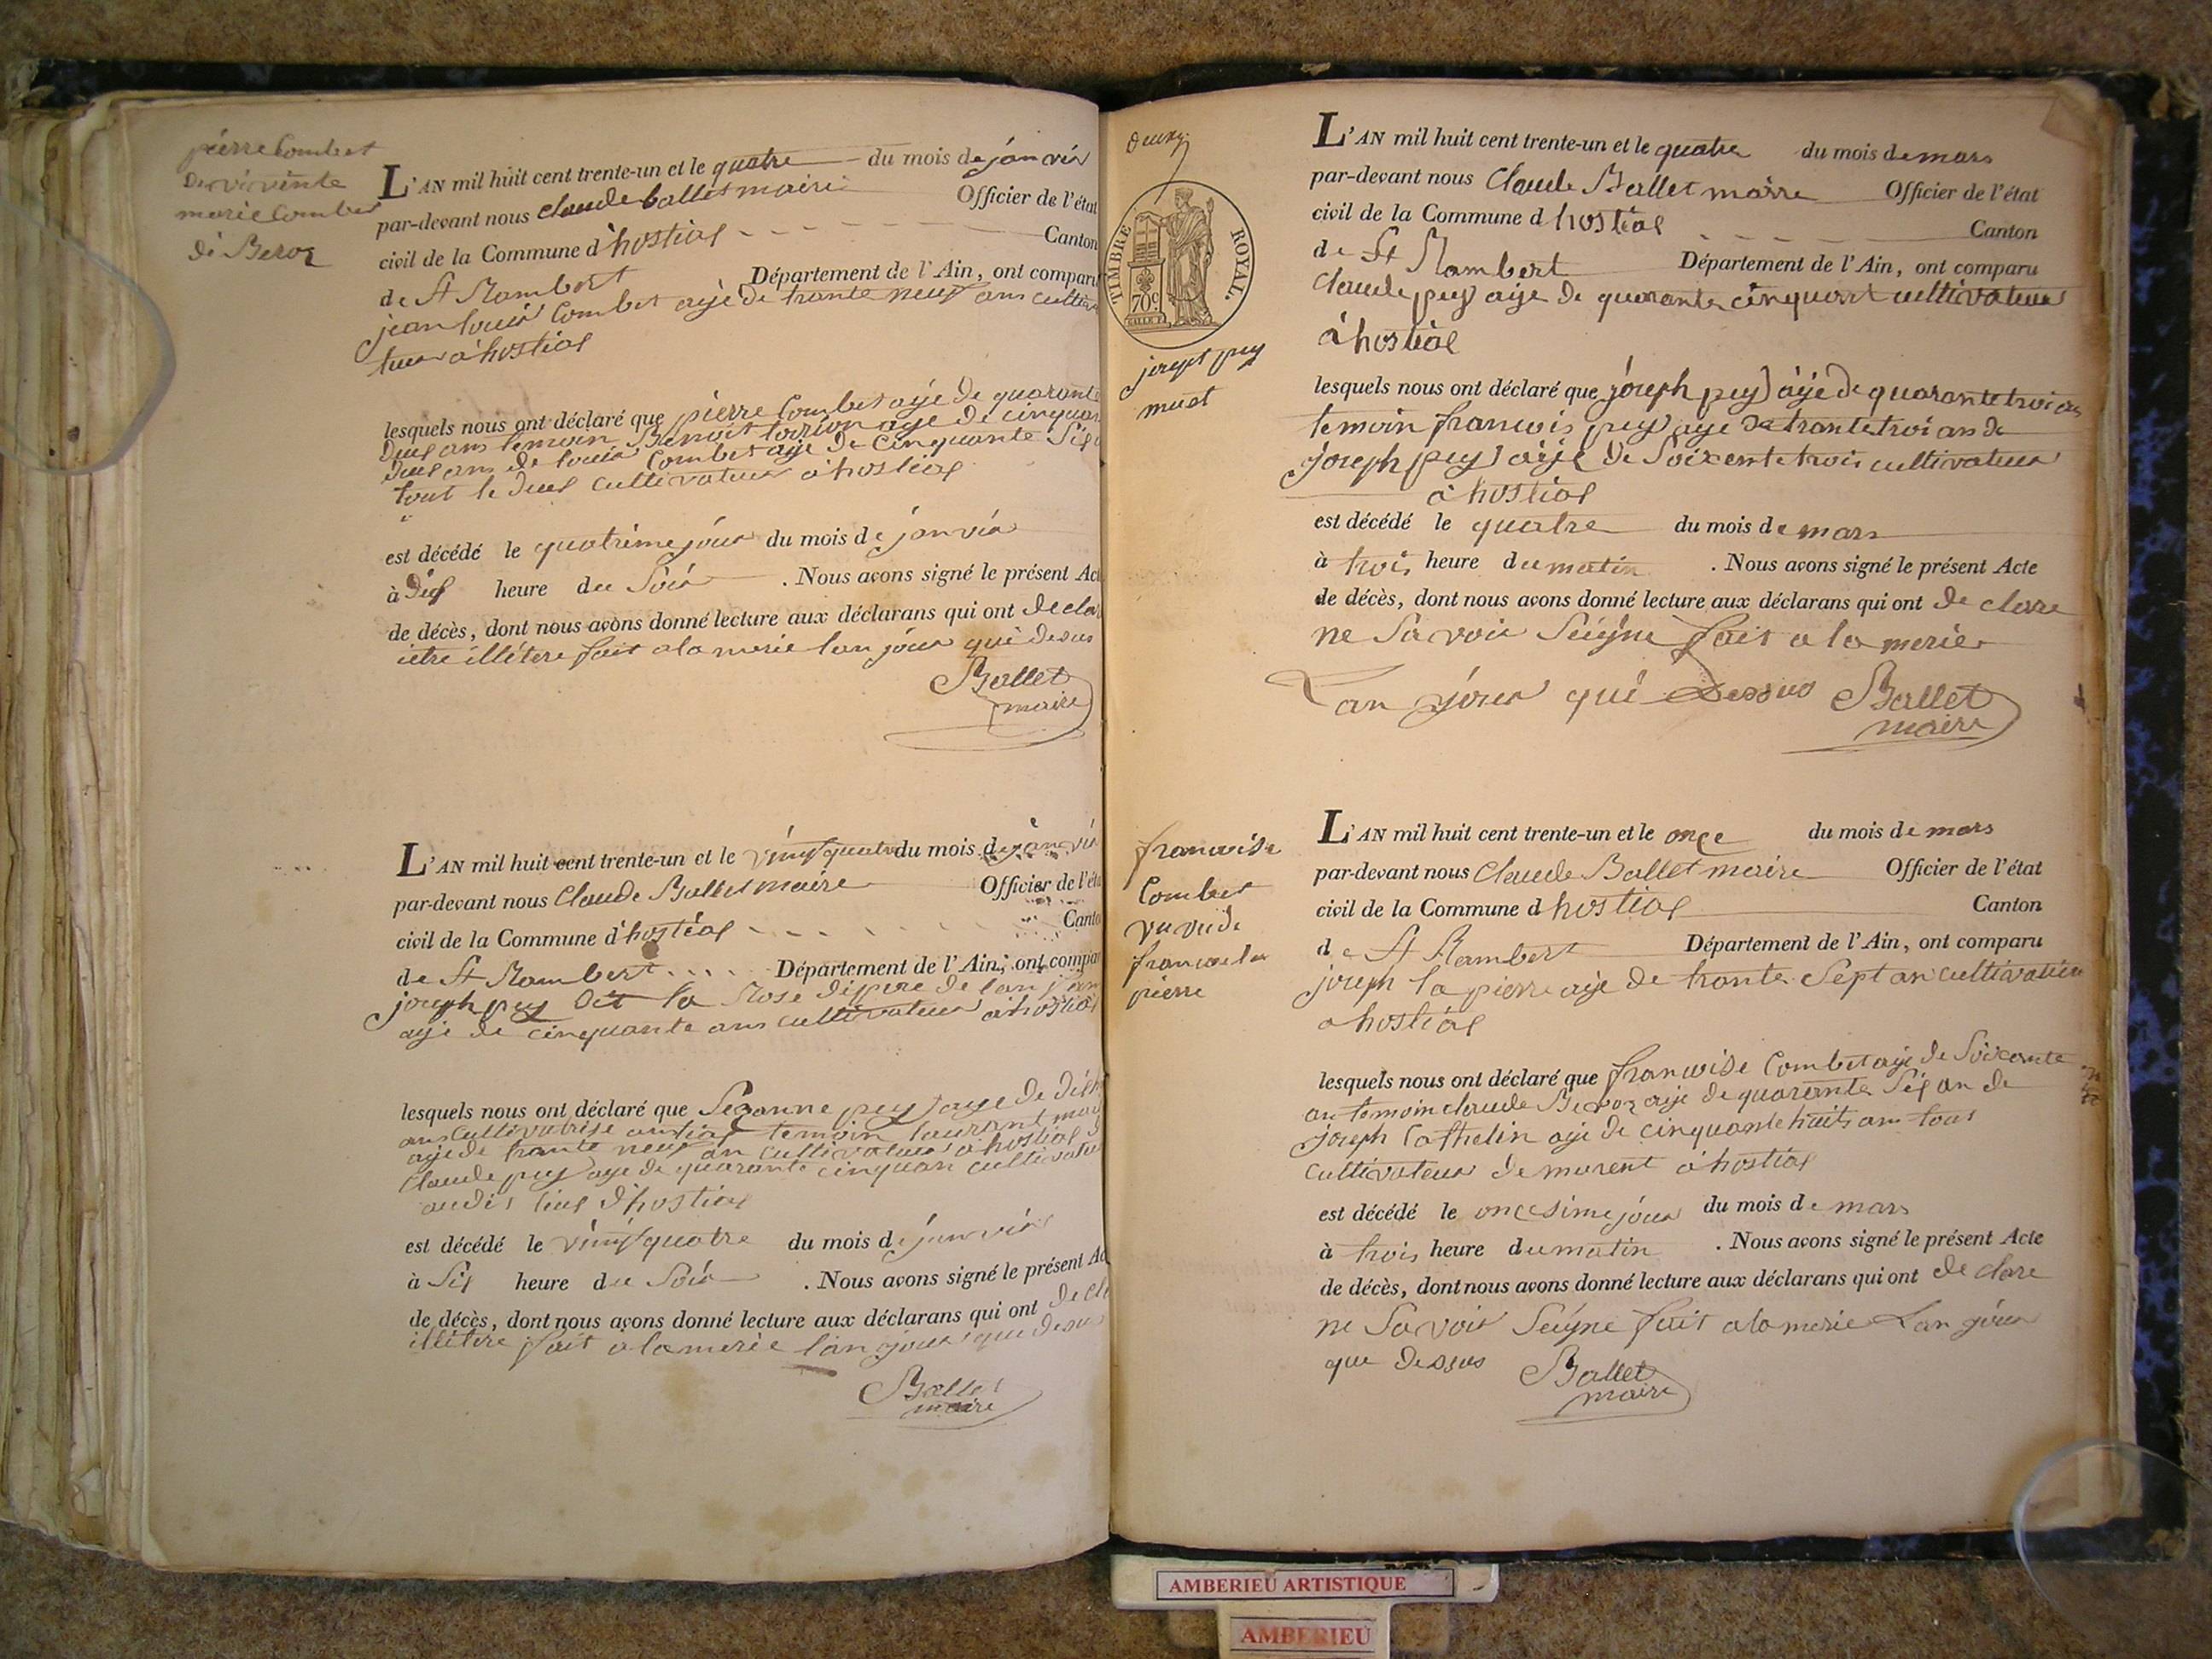 pierre Combet
marie Combet
di Beroz
L'AN mil huit cent trente-un et le quatre du mois de janvié
par-devant nous claude ballet maire Officier de l'état
civil de la Commune d'hostial Canton
de St Rambert Département de l'Ain, ont comparu
jean louis Combet aije de trante neuf ans cultiva
teur a hostial
lesquels nous ont déclaré que pierre Combet aije de quarante
deus ans temoin Benoit aije de cinquan
deus ans de louis Combet aije de cinquante
tout le deus cultivateur a hostial
est décédé le quatrime jour du mois de janvié
à heure du Soir . Nous avons signé le présent Act
de décès, dont nous avons donné lecture aux déclarans qui ont declar
ietre illétere fait a la merie lan jour que desus
Ballet
maire
L'AN mil huit cent trente-un et le vingt quatre du mois de janvié
par-devant nous Claude Ballet maire Officier de l'éta
civil de la Commune d'hostial Canto
de St Rambert Département de l'Ain, ont compar
joseph pey dit la Rose
aije de cinquante ans cultivateur a hostial
lesquels nous ont déclaré que Sezanne pey aije de
ans cultivatrise temoin laurant
aije de trante neuf an cultivateur a hostial
Claude pey aije de quarante cinquan cultivateu
audit lieu d'hostial
est décédé le vingt quatre du mois de janvié
à Sis heure du Soir . Nous avons signé le présent Ac
de décès, dont nous avons donné lecture aux déclarans qui ont decl
illétere fait a la merie lan jour que desus
Ballet
maire
TIMBRE ROYAL.
70c.
joseph pey
muet
L'AN mil huit cent trente-un et le quatre du mois de mars
par-devant nous Claude Ballet maire Officier de l'état
civil de la Commune d hostial Canton
de St Rambert Département de l'Ain, ont comparu
Claude pey aije de quarante cinquant cultivateur
a hostial
lesquels nous ont déclaré que joseph pey aije de quarante troi an
temoin francois pey aije de trante troi ans de
joseph pey aije de Soixente trois cultivateur
a hostial
est décédé le quatre du mois de mars
à trois heure du matin . Nous avons signé le présent Acte
de décès, dont nous avons donné lecture aux déclarans qui ont de clare
ne Savoir Seigne fait a la merie
Lan jour que dessus Ballet
maire
francoise
Combet
pierre
L'AN mil huit cent trente-un et le onze du mois de mars
par-devant nous Claude Ballet maire Officier de l'état
civil de la Commune d hostial Canton
de St Rambert Département de l'Ain, ont comparu
joseph la pierre aije de trante Sept an cultivateur
a hostial
lesquels nous ont déclaré que francoise Combet aije de Soixente
an temoin claude Beroz aije de quarante Sis an de
joseph Cathelin aije de cinquante huit ans tous
cultivateur demurent a hostial
est décédé le oncesime jour du mois de mars
à trois heure du matin . Nous avons signé le présent Acte
de décès, dont nous avons donné lecture aux déclarans qui ont declare
ne Savoir Seigne fait a la merie Lan jour
que dessus Ballet
maire
AMBERIEU ARTISTIQUE
AMBERIEU